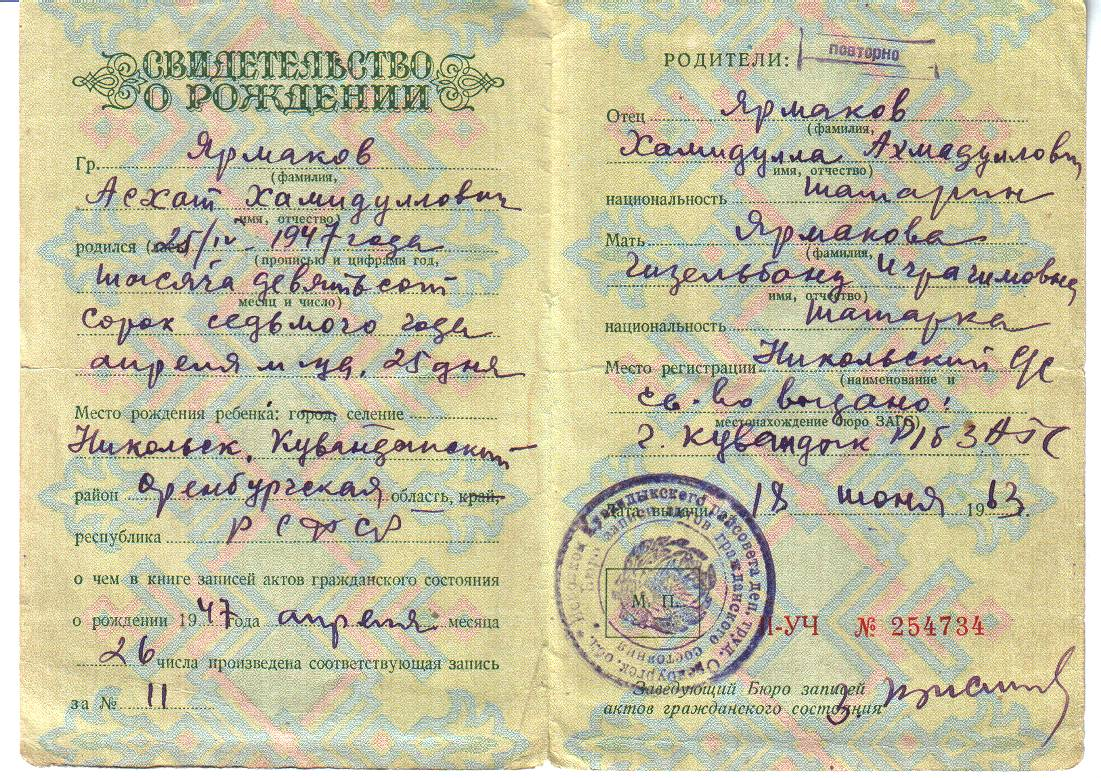 СВИДЕТЕЛЬСТВО
О РОЖДЕНИИ
Гр. Ярмаков
(фамилия,
Асхат Хамидуллович
имя, отчество)
родился 25/IV - 1947 года
(прописью и цифрами год,
тысяча девятьсот
месяц и число)
сорок седьмого года
апреля м-ца, 25 дня
Место рождения ребенка: город, селение
Никольск, Кувандыкский
район Оренбургская область, край,
республика РСФСР
о чем в книге записей актов гражданского состояния
о рождении 1947 года апреля месяца
26 числа произведена соответствующая запись
за № 11
РОДИТЕЛИ:
повторно
Отец Ярмаков
(фамилия,
Хамидулла Ахмадуллович
имя, отчество)
национальность татарин
Мать Ярмакова
(фамилия,
Гизельбану Играгимовна
имя, отчество)
национальность татарка
Место регистрации Никольский с/с
(наименование и
св-во выдано:
местонахождение бюро ЗАГС)
г. Кувандык Р/б ЗАГС
Дата выдачи 18 июня 1963 г.
М. П.
-УЧ № 254734
Заведующий Бюро записей
актов гражданского состояния